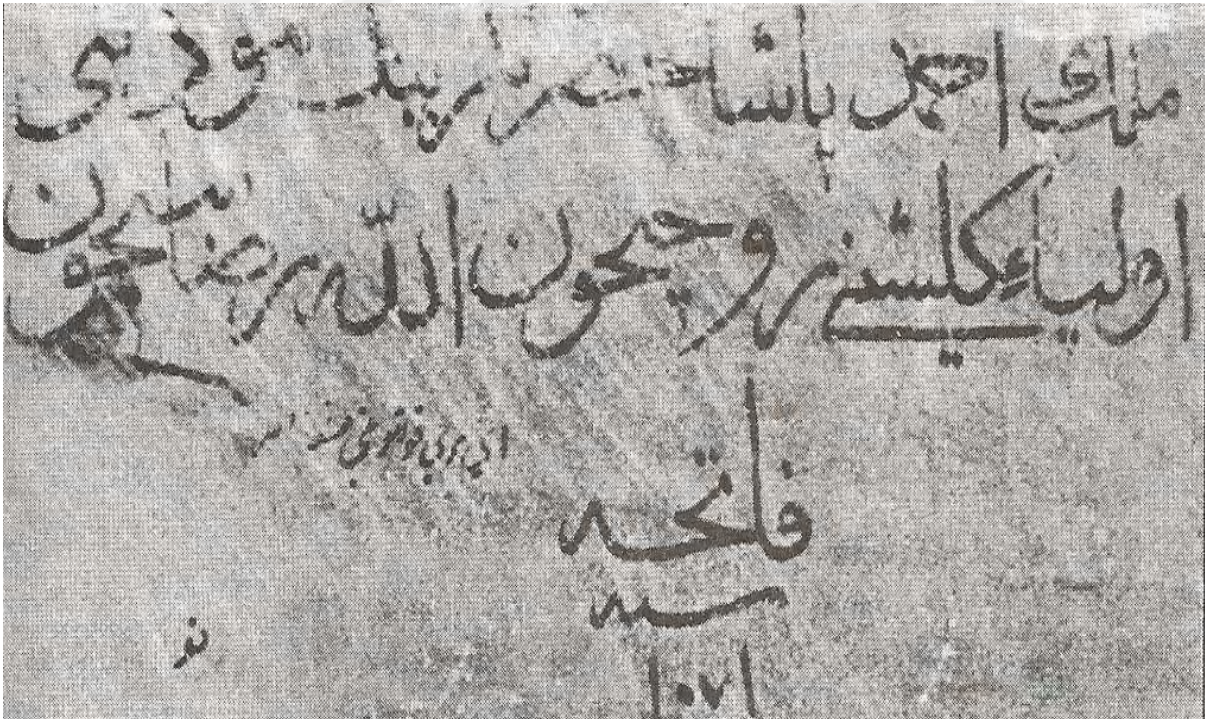 ملك احمد پاشا حضرتلرينك موذنی
اولياءِ كلشنے روحيچون اللّه رضاسيچون
فاتحه
سنه
١٠٧١